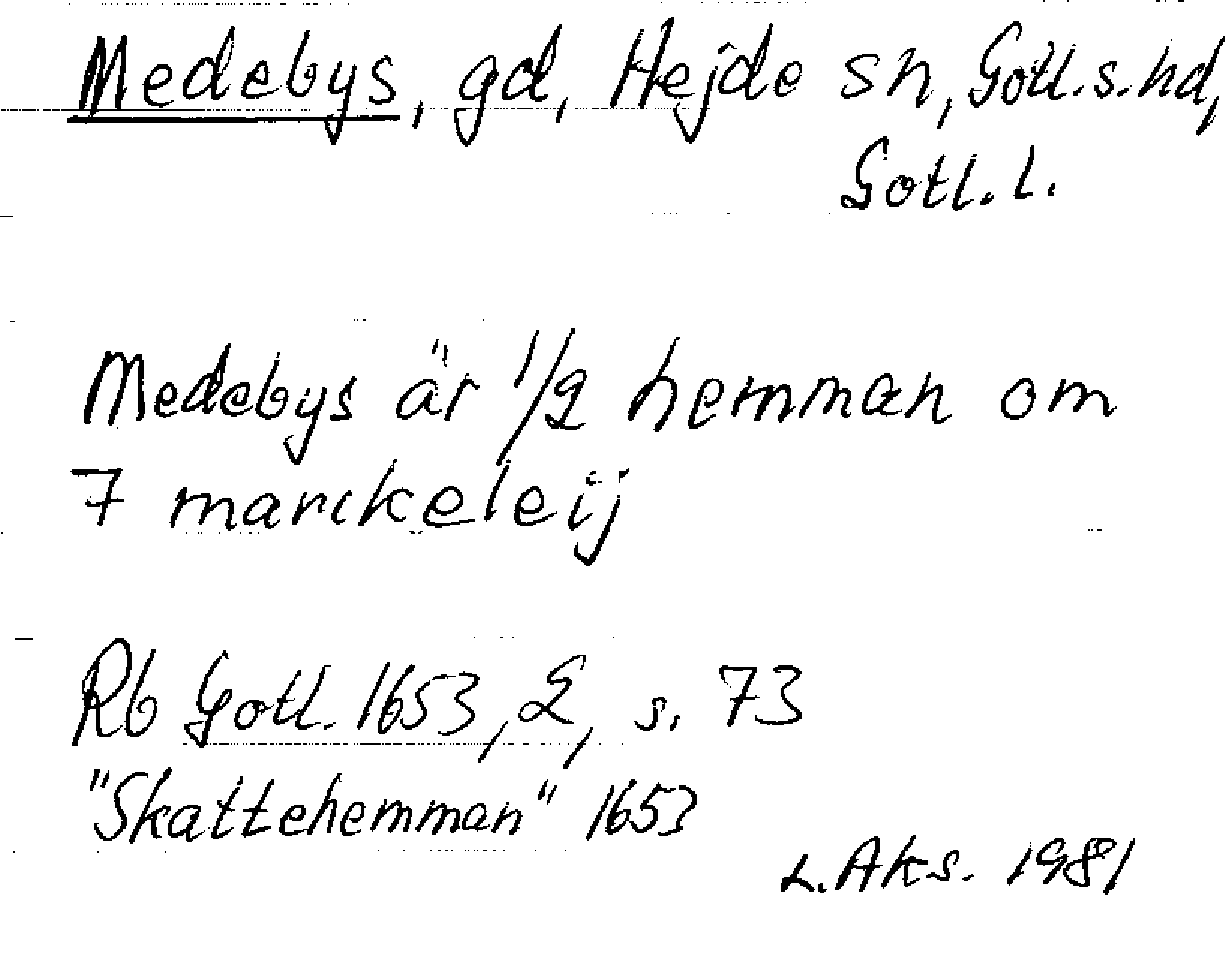 Medebys, gd, Hejde sn, Gotl.s.hd,
Gotl. l.
Medebys är 1/2 hemman om
7 marckeleij
Rb Gotl. 1653, 2, s. 73
"Skattehemman" 1653
L. Aks. 1981